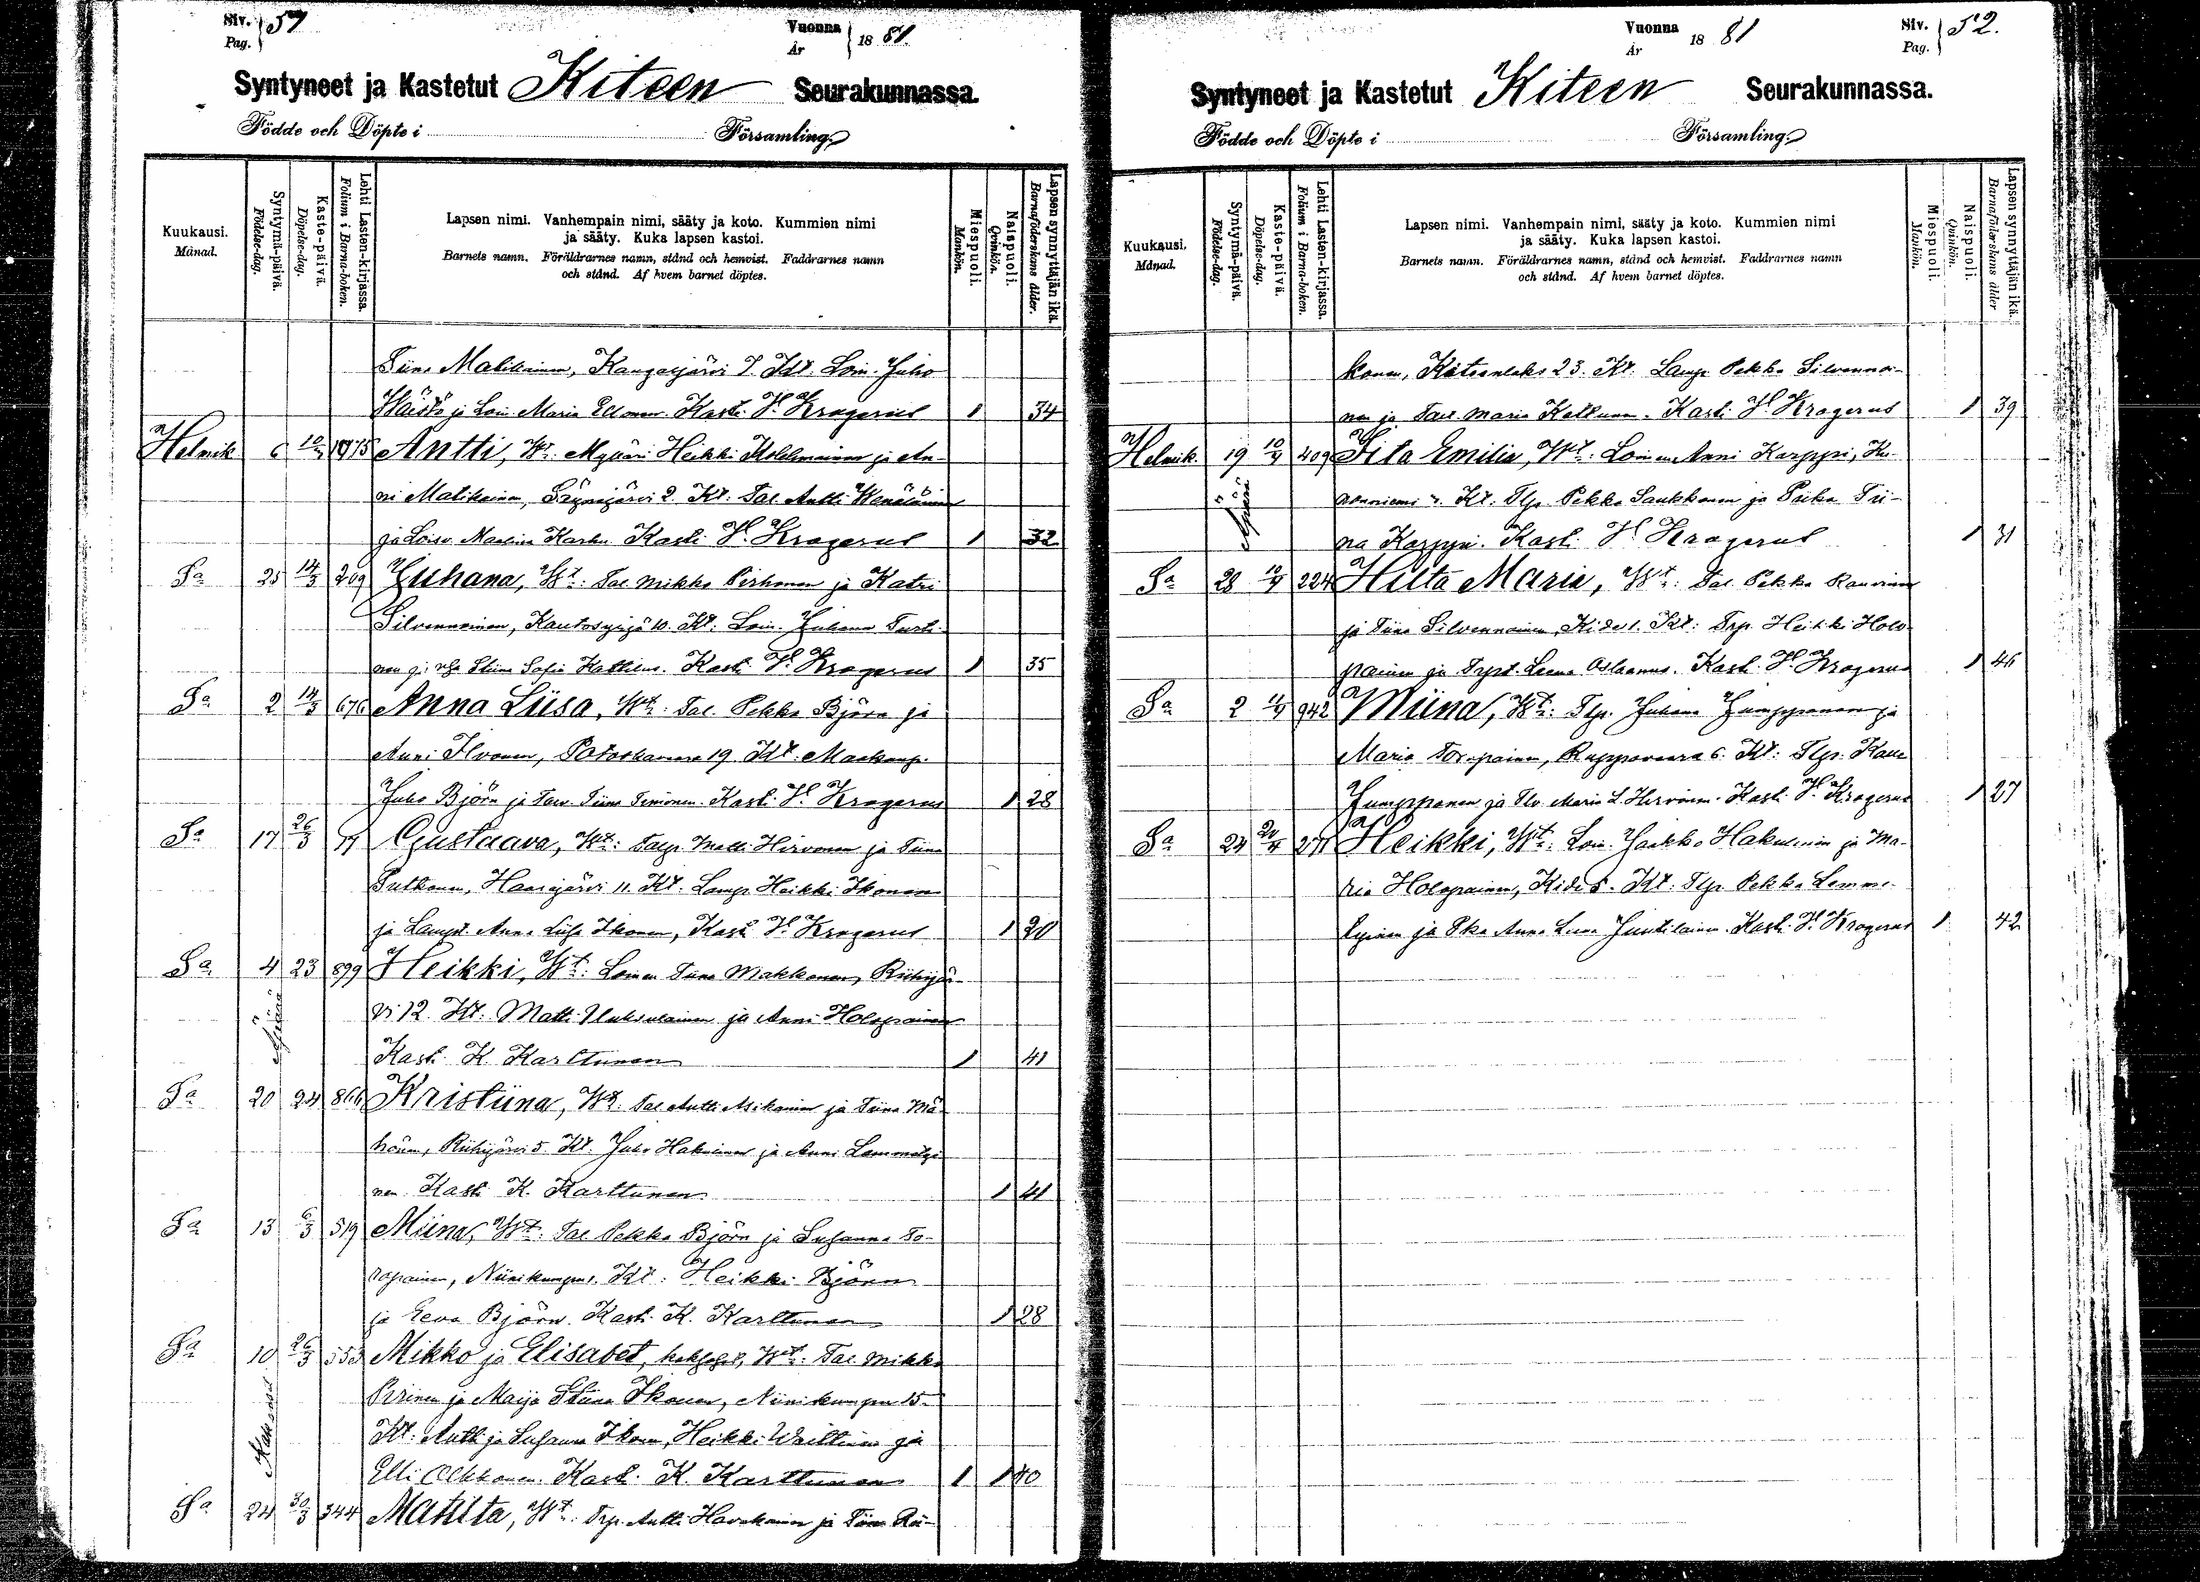 Siv. 51
Pag.
Vuonna
År
1881.
Syntyneet ja Kastetut Kiteen Seurakunnassa.
Födde och Döpte i Församling.
Kuukausi.
Månad.
Syntymä-päivä.
Födelse-dag.
Kaste-päivä.
Döpelse-dag.
Lehti Lasten-kirjassa.
Folium i Barna-boken.
Lapsen nimi. Vanhempain nimi, sääty ja koto. Kummien nimi
ja sääty. Kuka lapsen kastoi.
Barnets namn. Föräldrarnes namn, stånd och hemvist. Faddrarnes namn
och stånd. Af hvem barnet döptes.
Miespuoli.
Mankön.
Naispuoli.
Qvinkön.
Lapsen synnyttäjän ikä.
Barnaföderskans ålder.
Tiina Matikainen, Kangasjärvi 7. Kt. Lois. Juho
Väistö ja Lois. Maria Ellonen. Kasti H. Krogerus 1 34
Helmik. 6 10/3 1075 Antti, Wt. Mäkäri Heikki Kolehmainen ja An-
ni Matikainen, Särkijärvi 2. Kt. Tal. Antti Venäläinen
ja Kasti H. Krogerus 1 32
Sa 25 14/3 209 Juhana, Wt: Tal. Mikko Pirhonen ja Katri
Silvennoinen, 10. Kt: Lois. Juhana Turti-
nen ja Stiina Sofia Kasti H. Krogerus 1 35
Sa 2 14/3 676 Anna Liisa, Wt: Tal. Pekka Björn ja
Anni Ilvonen, Potoskavaara 19. Kt.
Juho Björn ja Tiina Kasti H. Krogerus 1 28
Sa 17 26/3 Gustaava, Wt: Matti Hirvonen ja Tiina
Putkonen, Haarajärvi 11. Kt. Lamp. Heikki Ikonen
ja Anna Liisa Ikonen, Kasti H. Krogerus 1 20
Sa 4 23 899 Heikki, Wt: Loinen Tiina Makkonen, Riihijär-
vi 12. Kt. Matti ja Anni Holopainen
Kasti K. Karttunen 1 41
Äpärä
Sa 20 24 866 Kristiina, Wt: Tal. Antti Asikainen ja Tiina Mä-
Riihijärvi 5. Kt. Juho Hakulinen ja Anni Lemmetyi-
nen. Kasti K. Karttunen. 1 41
Sa 13 6/3 519 Miina, Wt: Tal. Pekka Björn ja Susanna To-
ropainen, Niinikumpu 1. Kt: Heikki Björn
ja Eeva Björn. Kasti K. Karttunen 1 28
Sa 10 26/3 553 Mikko ja Elisabet, Wt: Tal. Mikko
Piirinen ja Maija Stiina Ikonen, Niinikumpu 15.
Kt: Antti ja Susanna Ikonen, Heikki ja
Elli Kasti K. Karttunen 1 1 40
Kaksoset
Sa 24 30/3 344 Matilta, Wt: Antti ja Tiina
Siv. 52.
Pag.
Vuonna
År
1881
Syntyneet ja Kastetut Kiteen Seurakunnassa.
Födde och Döpte i Församling.
Kuukausi.
Månad.
Syntymä-päivä.
Födelse-dag.
Kaste-päivä.
Döpelse-dag.
Lehti Lasten-kirjassa.
Folium i Barna-boken.
Lapsen nimi. Vanhempain nimi, sääty ja koto. Kummien nimi
ja sääty. Kuka lapsen kastoi.
Barnets namn. Föräldrarnes namn, stånd och hemvist. Faddrarnes namn
och stånd. Af hvem barnet döptes.
Miespuoli.
Mankön.
Naispuoli.
Qvinkön.
Lapsen synnyttäjän ikä.
Barnaföderskans ålder
konen, 23. Kt. Lamp. Pekka Silvennoi-
nen ja Maria Kettunen. Kasti H. Krogerus 1 39
Helmik. 19 10/4 409 Iita Emilia, Wt: Loinen Anni Karppi,
Kt. Pekka Saukkonen ja Piika Tii-
na Karppi. Kasti H. Krogerus 1 31
Äpärä
Sa 28 10/4 224 Hilta Maria, Wt: Tal. Pekka
ja Tiina Silvennoinen, Kide 1. Kt: Heikki Holo-
painen ja Leena Kasti H. Krogerus 1 46
Sa 2 11/4 942 Miina, Wt: Tlp. Juhana Jumppanen ja
Maria Toropainen, Ruppovaara 6. Kt: Tlp.
Jumppanen ja Maria L. Hirvonen. Kasti H. Krogerus 1 27
Sa 24 24/4 271 Heikki, Wt: Lois. Jaakko Hakulinen ja Ma-
ria Holopainen, Kide 5. Kt: Tlp. Pekka Lemme-
tyinen ja Pka Anna Leena Juntilainen. Kasti H. Krogerus 1 42